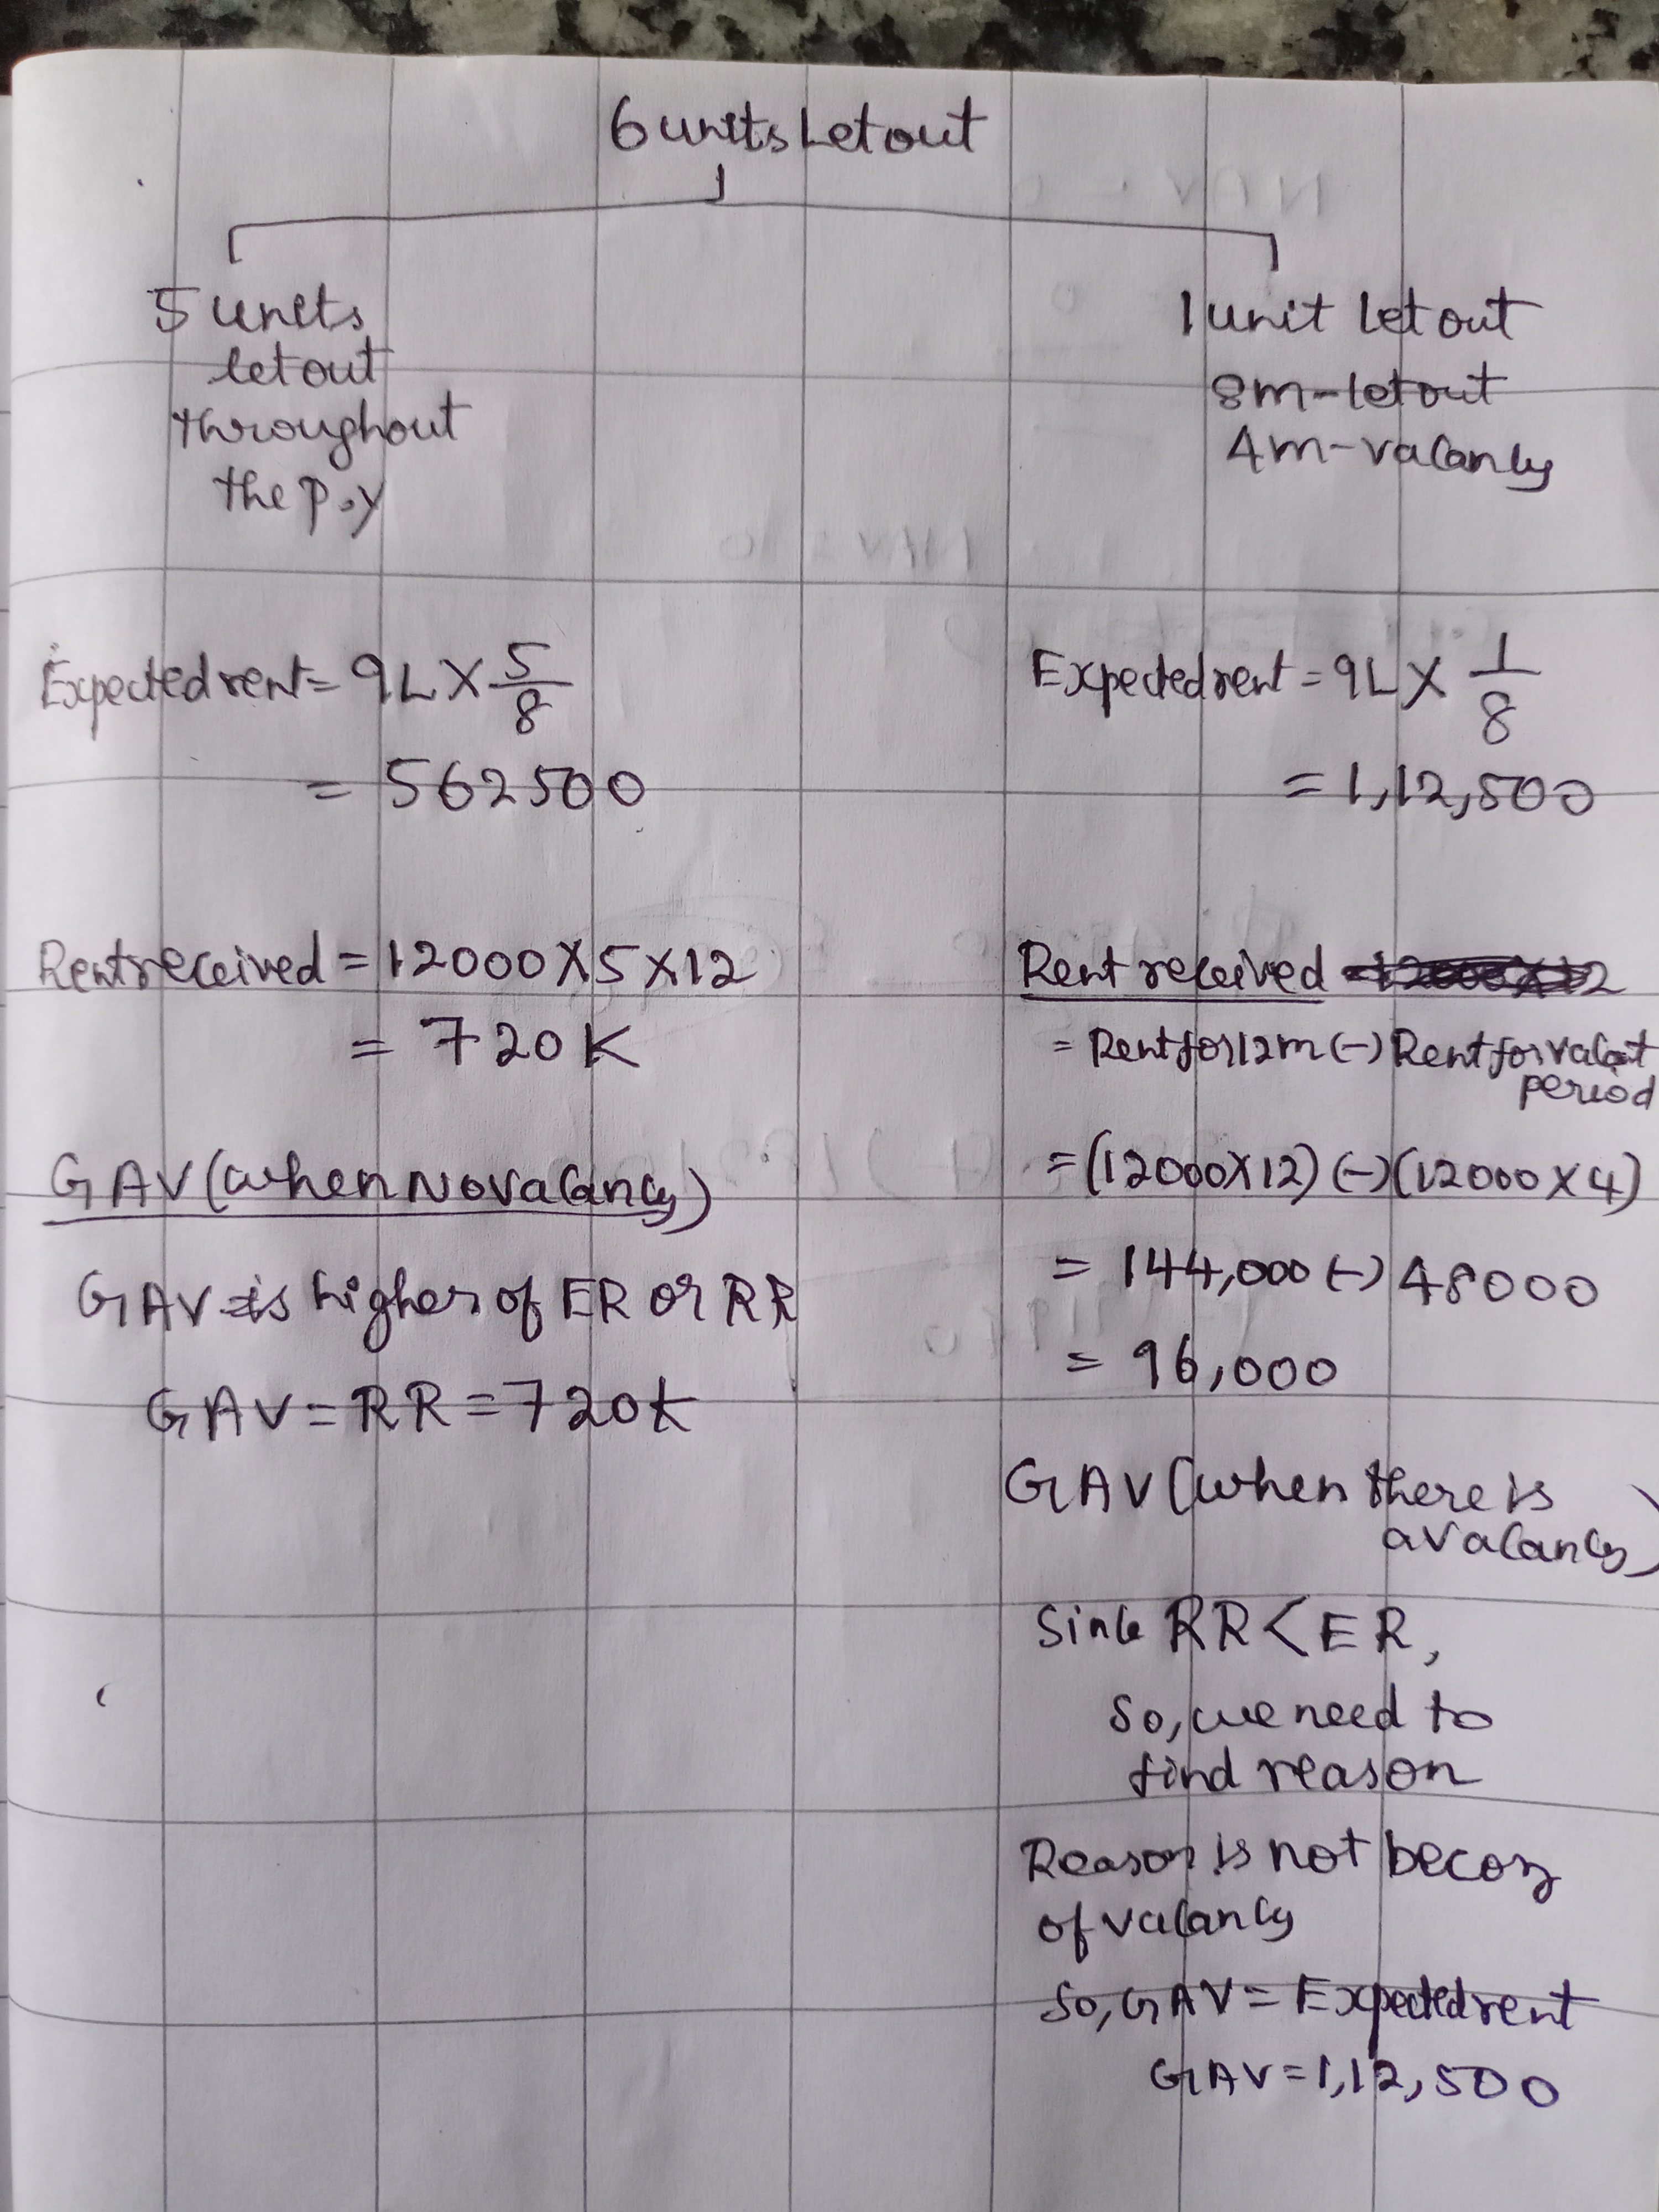 6 units Let out
5 units
let out
throughout
the P.Y
Expected rent = 9L X 5/8
= 562500
Rent received = 12000 X 5 X 12
= 720K
GAV (when No vacancy)
GAV is higher of ER or RR
GAV = RR = 720K
1 unit let out
8m - let out
4m - vacancy
Expected rent = 9L X 1/8
= 1,12,500
Rent received
= Rent for 12m (-) Rent for vacant
period
= (12000X12) (-) (12000 X 4)
= 144,000 (-) 48000
= 96,000
GAV (when there is
a vacancy)
Since RR < ER,
So, we need to
find reason
Reason is not becoz
of vacancy
So, GAV = Expected rent
GAV = 1,12,500